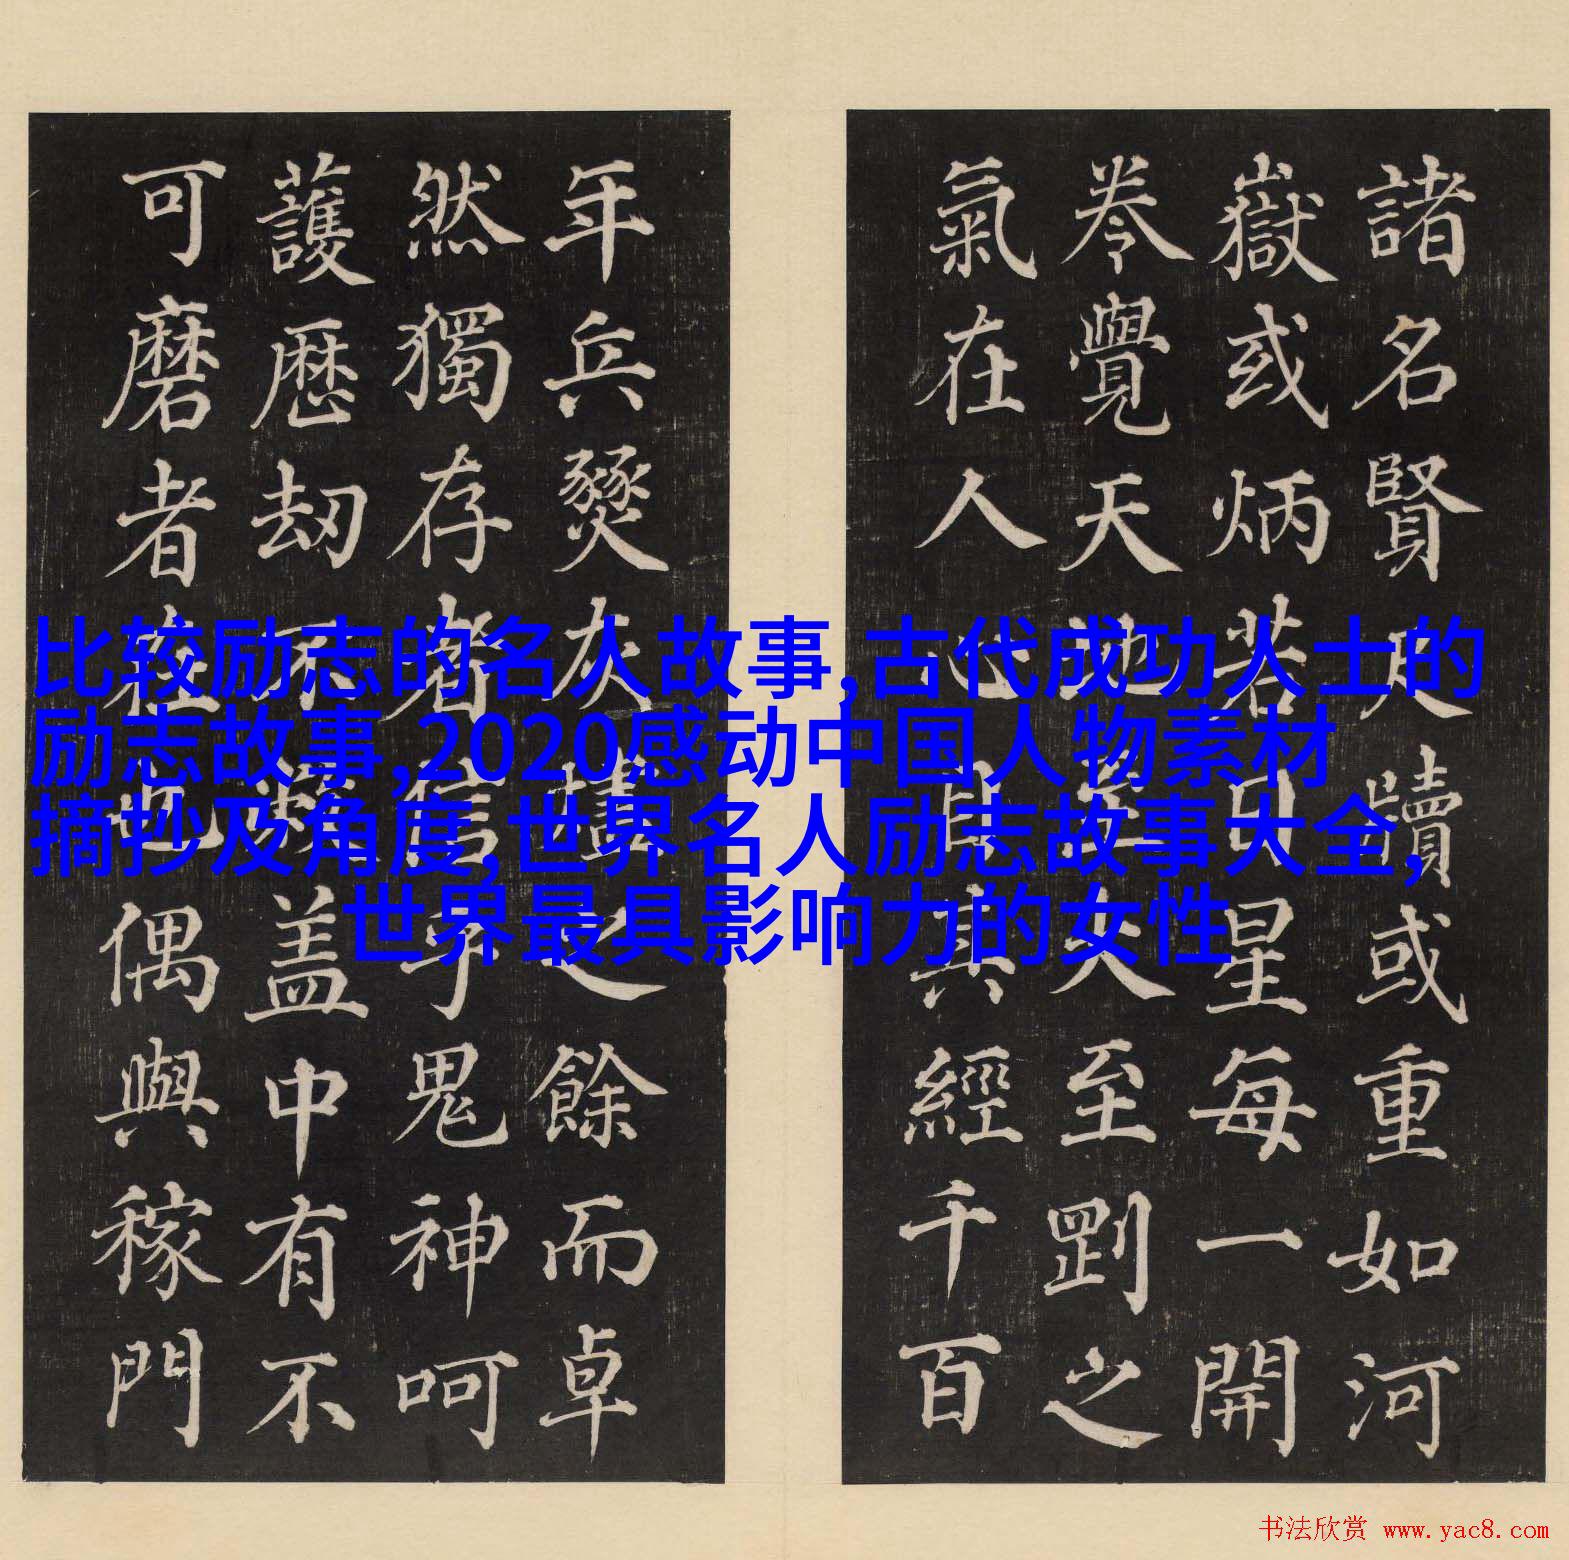 諸名賢尺牘或重如河
嶽或炳若日星每一開
卷覺天地至大至剛之
氣在人心目其經千百
年兵燹灰燼之餘而卓
然獨存者信乎鬼神呵
護厯劫不盖中有不
可磨者在也偶與稼門
比较励志的名人故事,古代成功人士的
励志故事,2020感动中国人物素材
摘抄及角度,世界名人励志故事大全,
世界最具影响力的女性
书法欣赏 www.yac8.com